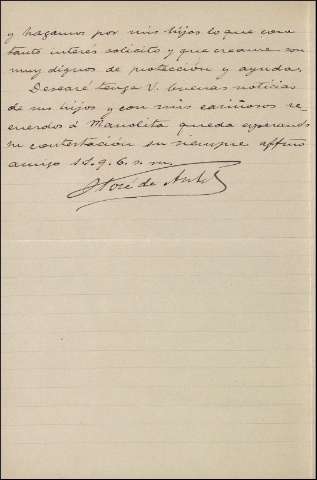 y hagamos por mis hijos lo que con
tanto interés solicito y que creame son
muy dignos de protección y ayuda.
Desearé tenga V. buenas noticias
de sus hijos y con mis cariñosos re
cuerdos á Manolita queda esperando
su contestación su siempre affmo
amigo s.s.q.b.s.m.
José de